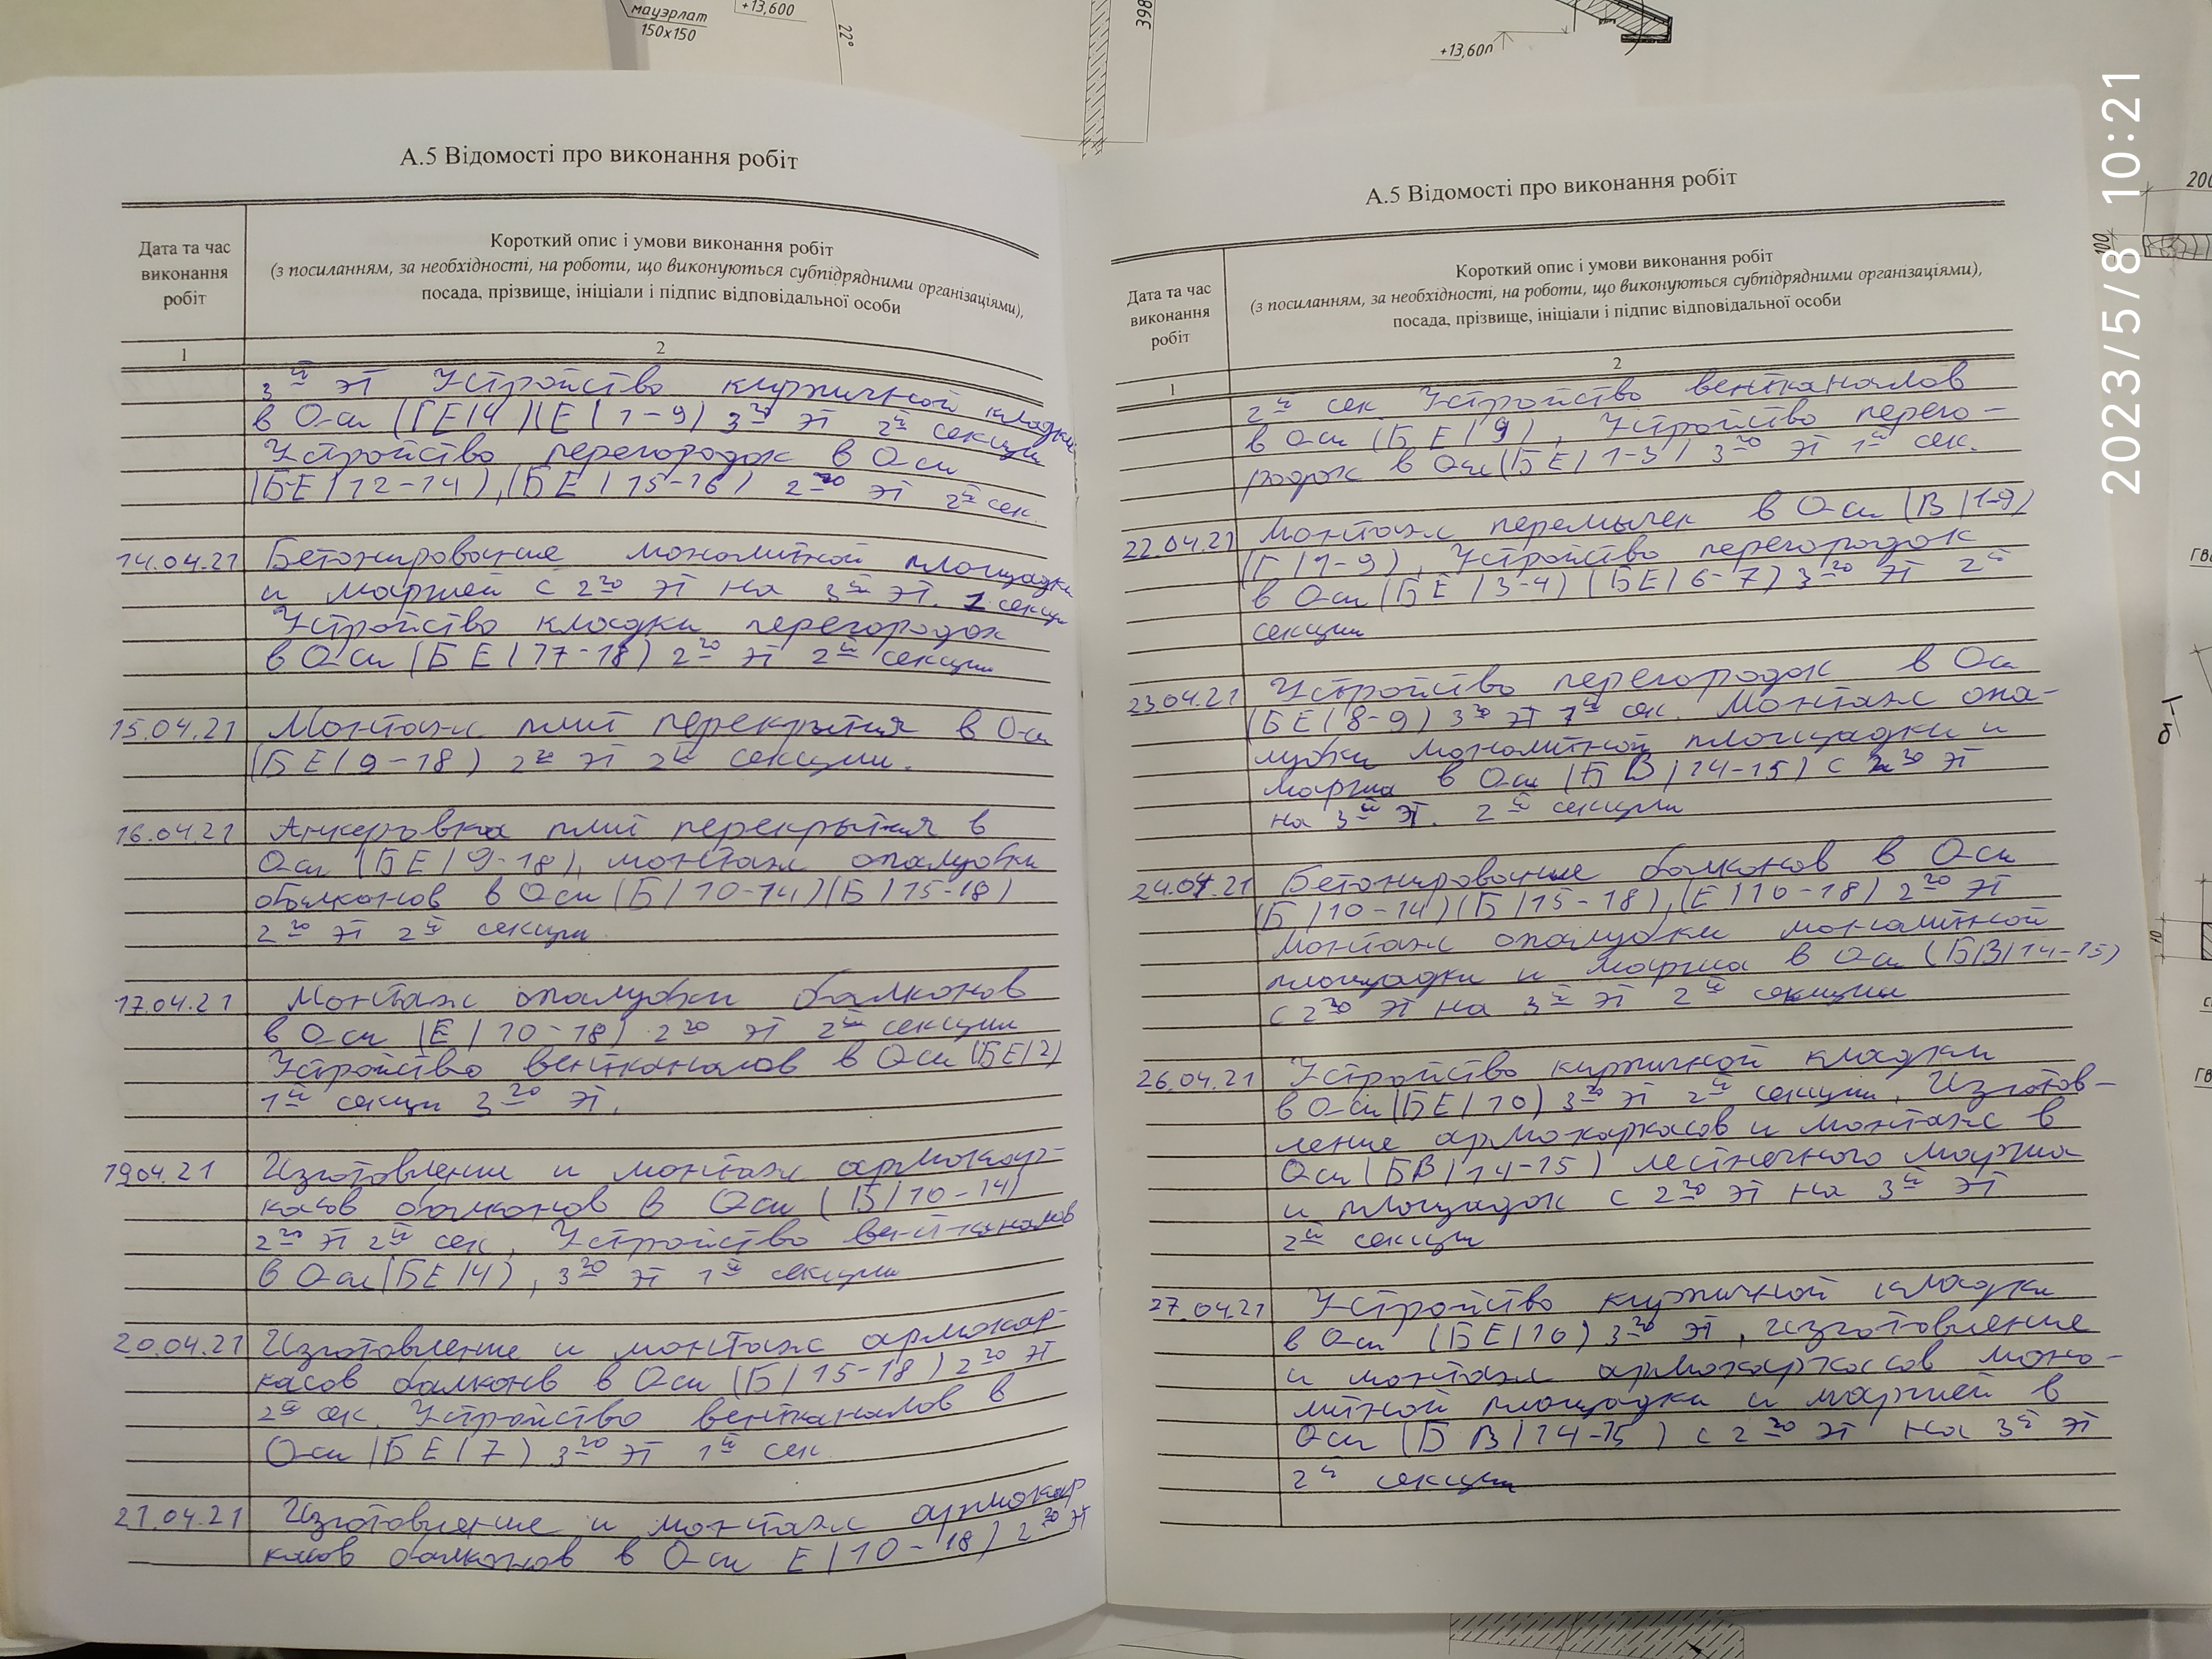 мауэрлат
150х150
+13,600
22°
398
+13,600
200
100
2023/5/8 10:21
А.5 Відомості про виконання робіт
Дата та час
виконання
робіт
Короткий опис і умови виконання робіт
(з посиланням, за необхідності, на роботи, що виконуються субпідрядними організаціями),
посада, прізвище, ініціали і підпис відповідальної особи
1
2
3й эт Устройство кирпичной кладки
в Оси (ГЕ/4)(Е/1-9) 3го эт 2й секции
Устройство перегородок в Оси
(БЕ/12-14),(БЕ/15-16) 2го эт 2й сек.
14.04.21 Бетонирование монолитной площадки
и маршей с 2го эт на 3й эт. 1 секции
Устройство кладки перегородок
в Оси (БЕ/17-18) 2го эт 2й секции
15.04.21 Монтаж плит перекрытия в Оси
(БЕ/9-18) 2й эт 2й секции.
16.04.21 Анкеровка плит перекрытия в
Оси (БЕ/9-18), монтаж опалубки
балконов в Оси (Б/10-14)(Б/15-18)
2го эт 2й секции
17.04.21 Монтаж опалубки балконов
в Оси (Е/10-18) 2го эт 2й секции
Устройство вентканалов в Оси (БЕ/2)
1й секции 3го эт.
19.04.21 Изготовление и монтаж армокар-
касов балконов в Оси (Б/10-14)
2го эт 2й сек, Устройство вентканалов
в Оси(БЕ/4), 3го эт 1й секции
20.04.21 Изготовление и монтаж армокар-
касов балконв в Оси (Б/15-18) 2го эт
2й сек. Устройство вентканалов в
Оси (БЕ/7) 3го эт 1й сек.
21.04.21 Изготовление и монтаж армокар
касов балконов в Оси Е/10-18) 2го эт
А.5 Відомості про виконання робіт
Дата та час
виконання
робіт
Короткий опис і умови виконання робіт
(з посиланням, за необхідності, на роботи, що виконуються субпідрядними організаціями),
посада, прізвище, ініціали і підпис відповідальної особи
1
2
2й сек Устройство вентканалов
в Оси (БЕ/9), Устройство перего-
родок в Оси(БЕ/1-3) 3го эт 1й сек.
22.04.21 Монтаж перемычек в Оси (В/1-9)
(Г/1-9), Устройство перегородок
в Оси (БЕ/3-4) (БЕ/6-7) 3го эт 2й
секции
23.04.21 Устройство перегородок в Оси
(БЕ/8-9) 3го эт 1й сек. Монтаж опа-
лубки монолитной площадки и
марша в Оси (БВ/14-15) с 2го эт
на 3й эт. 2й секции
24.04.21 Бетонирование балконов в Оси
(Б/10-14)(Б/15-18),(Е/10-18) 2го эт
Монтаж опалубки монолитной
площадки и марша в Оси (БВ/14-15)
с 2го эт на 3й эт 2й секции
26.04.21 Устройство кирпичной кладки
в Оси(БЕ/10) 3го эт 2й секции, Изготов-
ление армокаркасов и монтаж в
Оси (БВ/14-15) лестничного марша
и площадок с 2го эт на 3й эт
2й секции
27.04.21 Устройство кирпичной кладки
в Оси (БЕ/10) 3го эт, изготовление
и монтаж армокаркасов моно-
литной площадки и маршей в
Оси (БВ/14-15) с 2го эт на 3й эт
2й секции